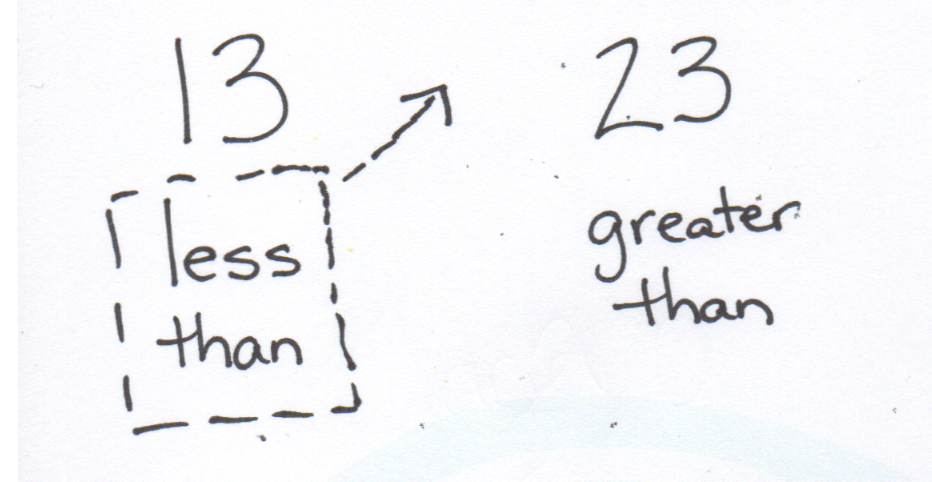 13 23
less
than
greater
than